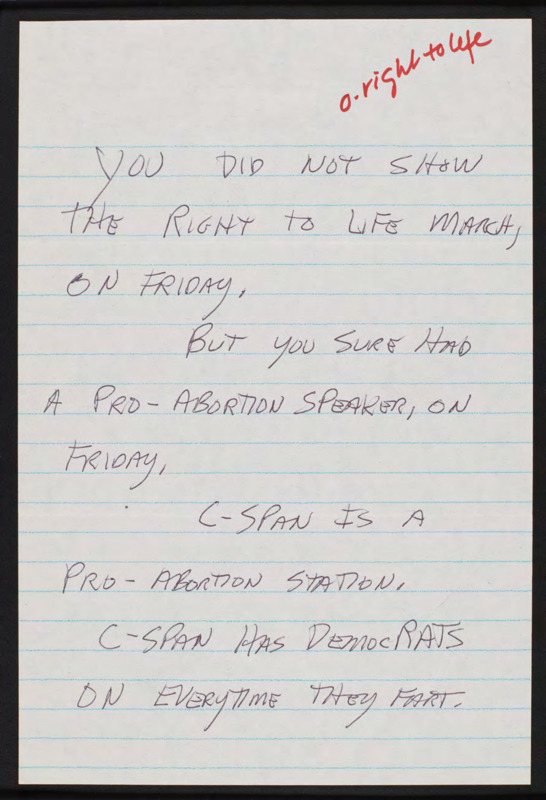 o-right to life
YOU DID NOT SHOW
THE RIGHT TO LIFE MARCH,
ON FRIDAY.
BUT YOU SURE HAD
A PRO-ABORTION SPEAKER, ON
FRIDAY.
C-SPAN IS A
PRO-ABORTION STATION.
C-SPAN HAS DEMOCRATS
ON EVERYTIME THEY FART.